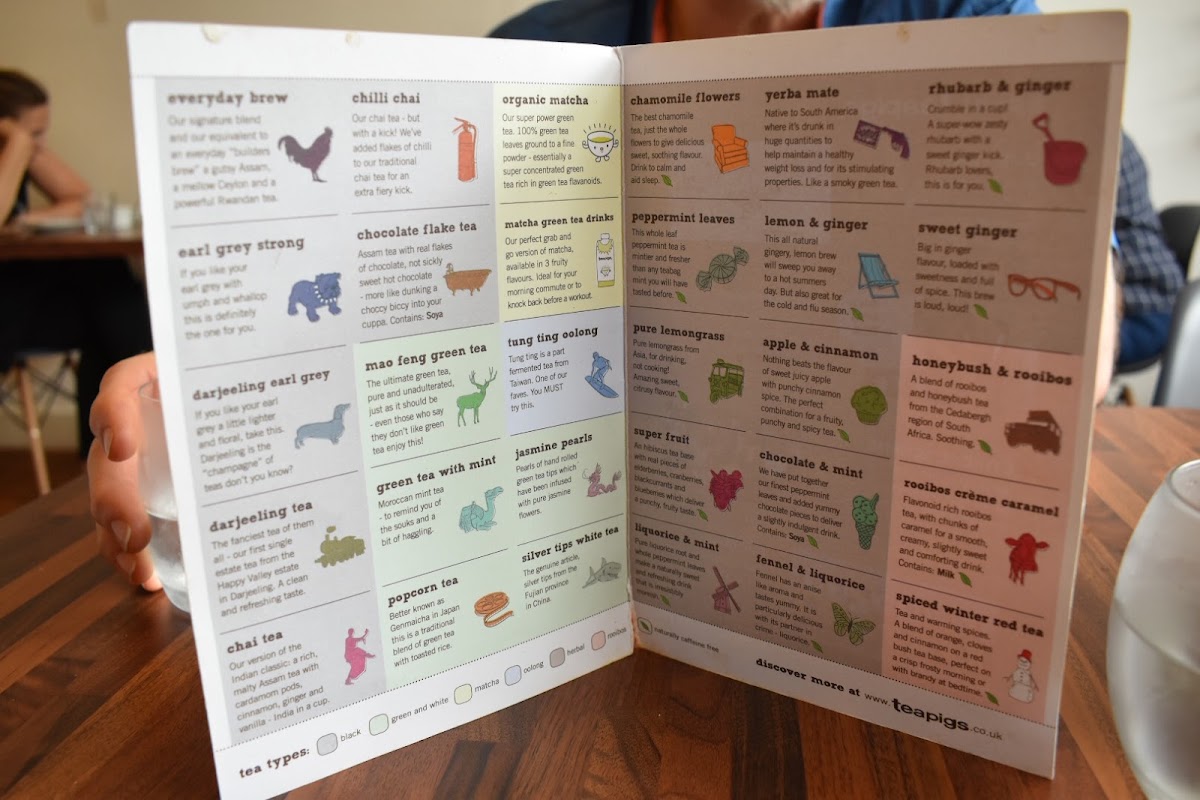 everyday brew
Our signature blend
and our equivalent to
an everyday "builders
brew" a gutsy Assam,
a mellow Ceylon and a
powerful Rwandan tea.
earl grey strong
If you like your
earl grey with
oomph and whallop
this is definitely
the one for you.
darjeeling earl grey
If you like your earl
grey a little lighter
and floral, take this.
Darjeeling is the
"champagne" of
teas don't you know?
darjeeling tea
The fanciest tea of them
all - our first single
estate tea from the
Happy Valley estate
in Darjeeling. A clean
and refreshing taste.
chai tea
Our version of the
Indian classic: a rich,
malty Assam tea with
cardamom pods,
cinnamon, ginger and
vanilla - India in a cup.
chilli chai
Our chai tea - but
with a kick! We've
added flakes of chilli
to our traditional
chai tea for an
extra fiery kick.
chocolate flake tea
Assam tea with real flakes
of chocolate, not sickly
sweet hot chocolate
- more like dunking a
choccy biccy into your
cuppa. Contains: Soya
mao feng green tea
The ultimate green tea,
pure and unadulterated,
just as it should be
- even those who say
they don't like green
tea enjoy this!
green tea with mint
Moroccan mint tea
- to remind you of
the souks and a
bit of haggling.
popcorn tea
Better known as
Genmaicha in Japan
this is a traditional
blend of green tea
with toasted rice.
organic matcha
Our super power green
tea. 100% green tea
leaves ground to a fine
powder - essentially a
super concentrated green
tea rich in green tea flavanoids.
matcha green tea drinks
Our perfect grab and
go version of matcha,
available in 3 fruity
flavours. Ideal for your
morning commute or to
knock back before a workout.
tung ting oolong
Tung ting is a part
fermented tea from
Taiwan. One of our
faves. You MUST
try this.
jasmine pearls
Pearls of hand rolled
green tea tips which
have been infused
with pure jasmine
flowers.
silver tips white tea
The genuine article,
silver tips from the
Fujian province
in China.
tea types: black green and white matcha oolong herbal rooibos
chamomile flowers
The best chamomile
tea, just the whole
flowers to give delicious
sweet, soothing flavour.
Drink to calm and
aid sleep.
peppermint leaves
This whole leaf
peppermint tea is
mintier and fresher
than any teabag
mint you will have
tasted before.
pure lemongrass
Pure lemongrass from
Asia, for drinking,
not cooking!
Amazing sweet,
citrusy flavour.
super fruit
An hibiscus tea base
with real pieces of
elderberries, cranberries,
blackcurrants and
blueberries which deliver
a punchy, fruity taste.
liquorice & mint
Pure liquorice root and
whole peppermint leaves
make a naturally sweet
and refreshing drink
that is irresistibly
moreish.
yerba mate
Native to South America
where it's drunk in
huge quantities to
help maintain a healthy
weight loss and for its stimulating
properties. Like a smoky green tea.
lemon & ginger
This all natural
gingery, lemon brew
will sweep you away
to a hot summers
day. But also great for
the cold and flu season.
apple & cinnamon
Nothing beats the flavour
of sweet juicy apple
with punchy cinnamon
spice. The perfect
combination for a fruity,
punchy and spicy tea.
chocolate & mint
We have put together
our finest peppermint
leaves and added yummy
chocolate pieces to deliver
a slightly indulgent drink.
Contains: Soya
fennel & liquorice
Fennel has an anise
like aroma and
tastes yummy. It is
particularly delicious
with its partner in
crime - liquorice.
rhubarb & ginger
Crumble in a cup!
A super-wow zesty
rhubarb with a
sweet ginger kick.
Rhubarb lovers,
this is for you.
sweet ginger
Big in ginger
flavour, loaded with
sweetness and full
of spice. This brew
is loud, loud!
honeybush & rooibos
A blend of rooibos
and honeybush tea
from the Cedabergh
region of South
Africa. Soothing.
rooibos crème caramel
Flavonoid rich rooibos
tea, with chunks of
caramel for a smooth,
creamy, slightly sweet
and comforting drink.
Contains: Milk
spiced winter red tea
Tea and warming spices.
A blend of orange, cloves
and cinnamon on a red
bush tea base, perfect on
a crisp frosty morning or
with brandy at bedtime.
naturally caffeine free
discover more at www.teapigs.co.uk